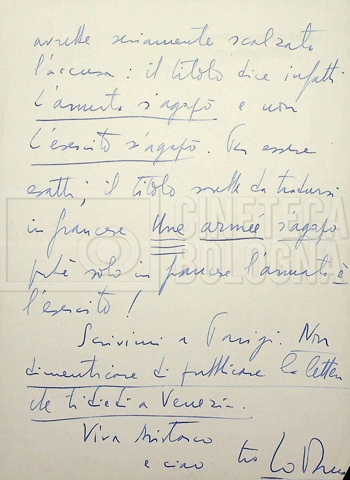 avrebbe seriamente scalzato
l'accusa : il titolo dice infatti
L'armata s'agapò e non
L'esercito s'agapò. Per essere
esatti, il titolo sarebbe da tradursi
in francese Une armée s'agapò
CINETECA
BOLOGNA
solo in francese l'armata è
l'esercito !
Scrivimi a Parigi. Non
dimenticare di pubblicare la lettera
che ti diedi a Venezia.
Viva Aristarco
e ciao tuo Lo Duca